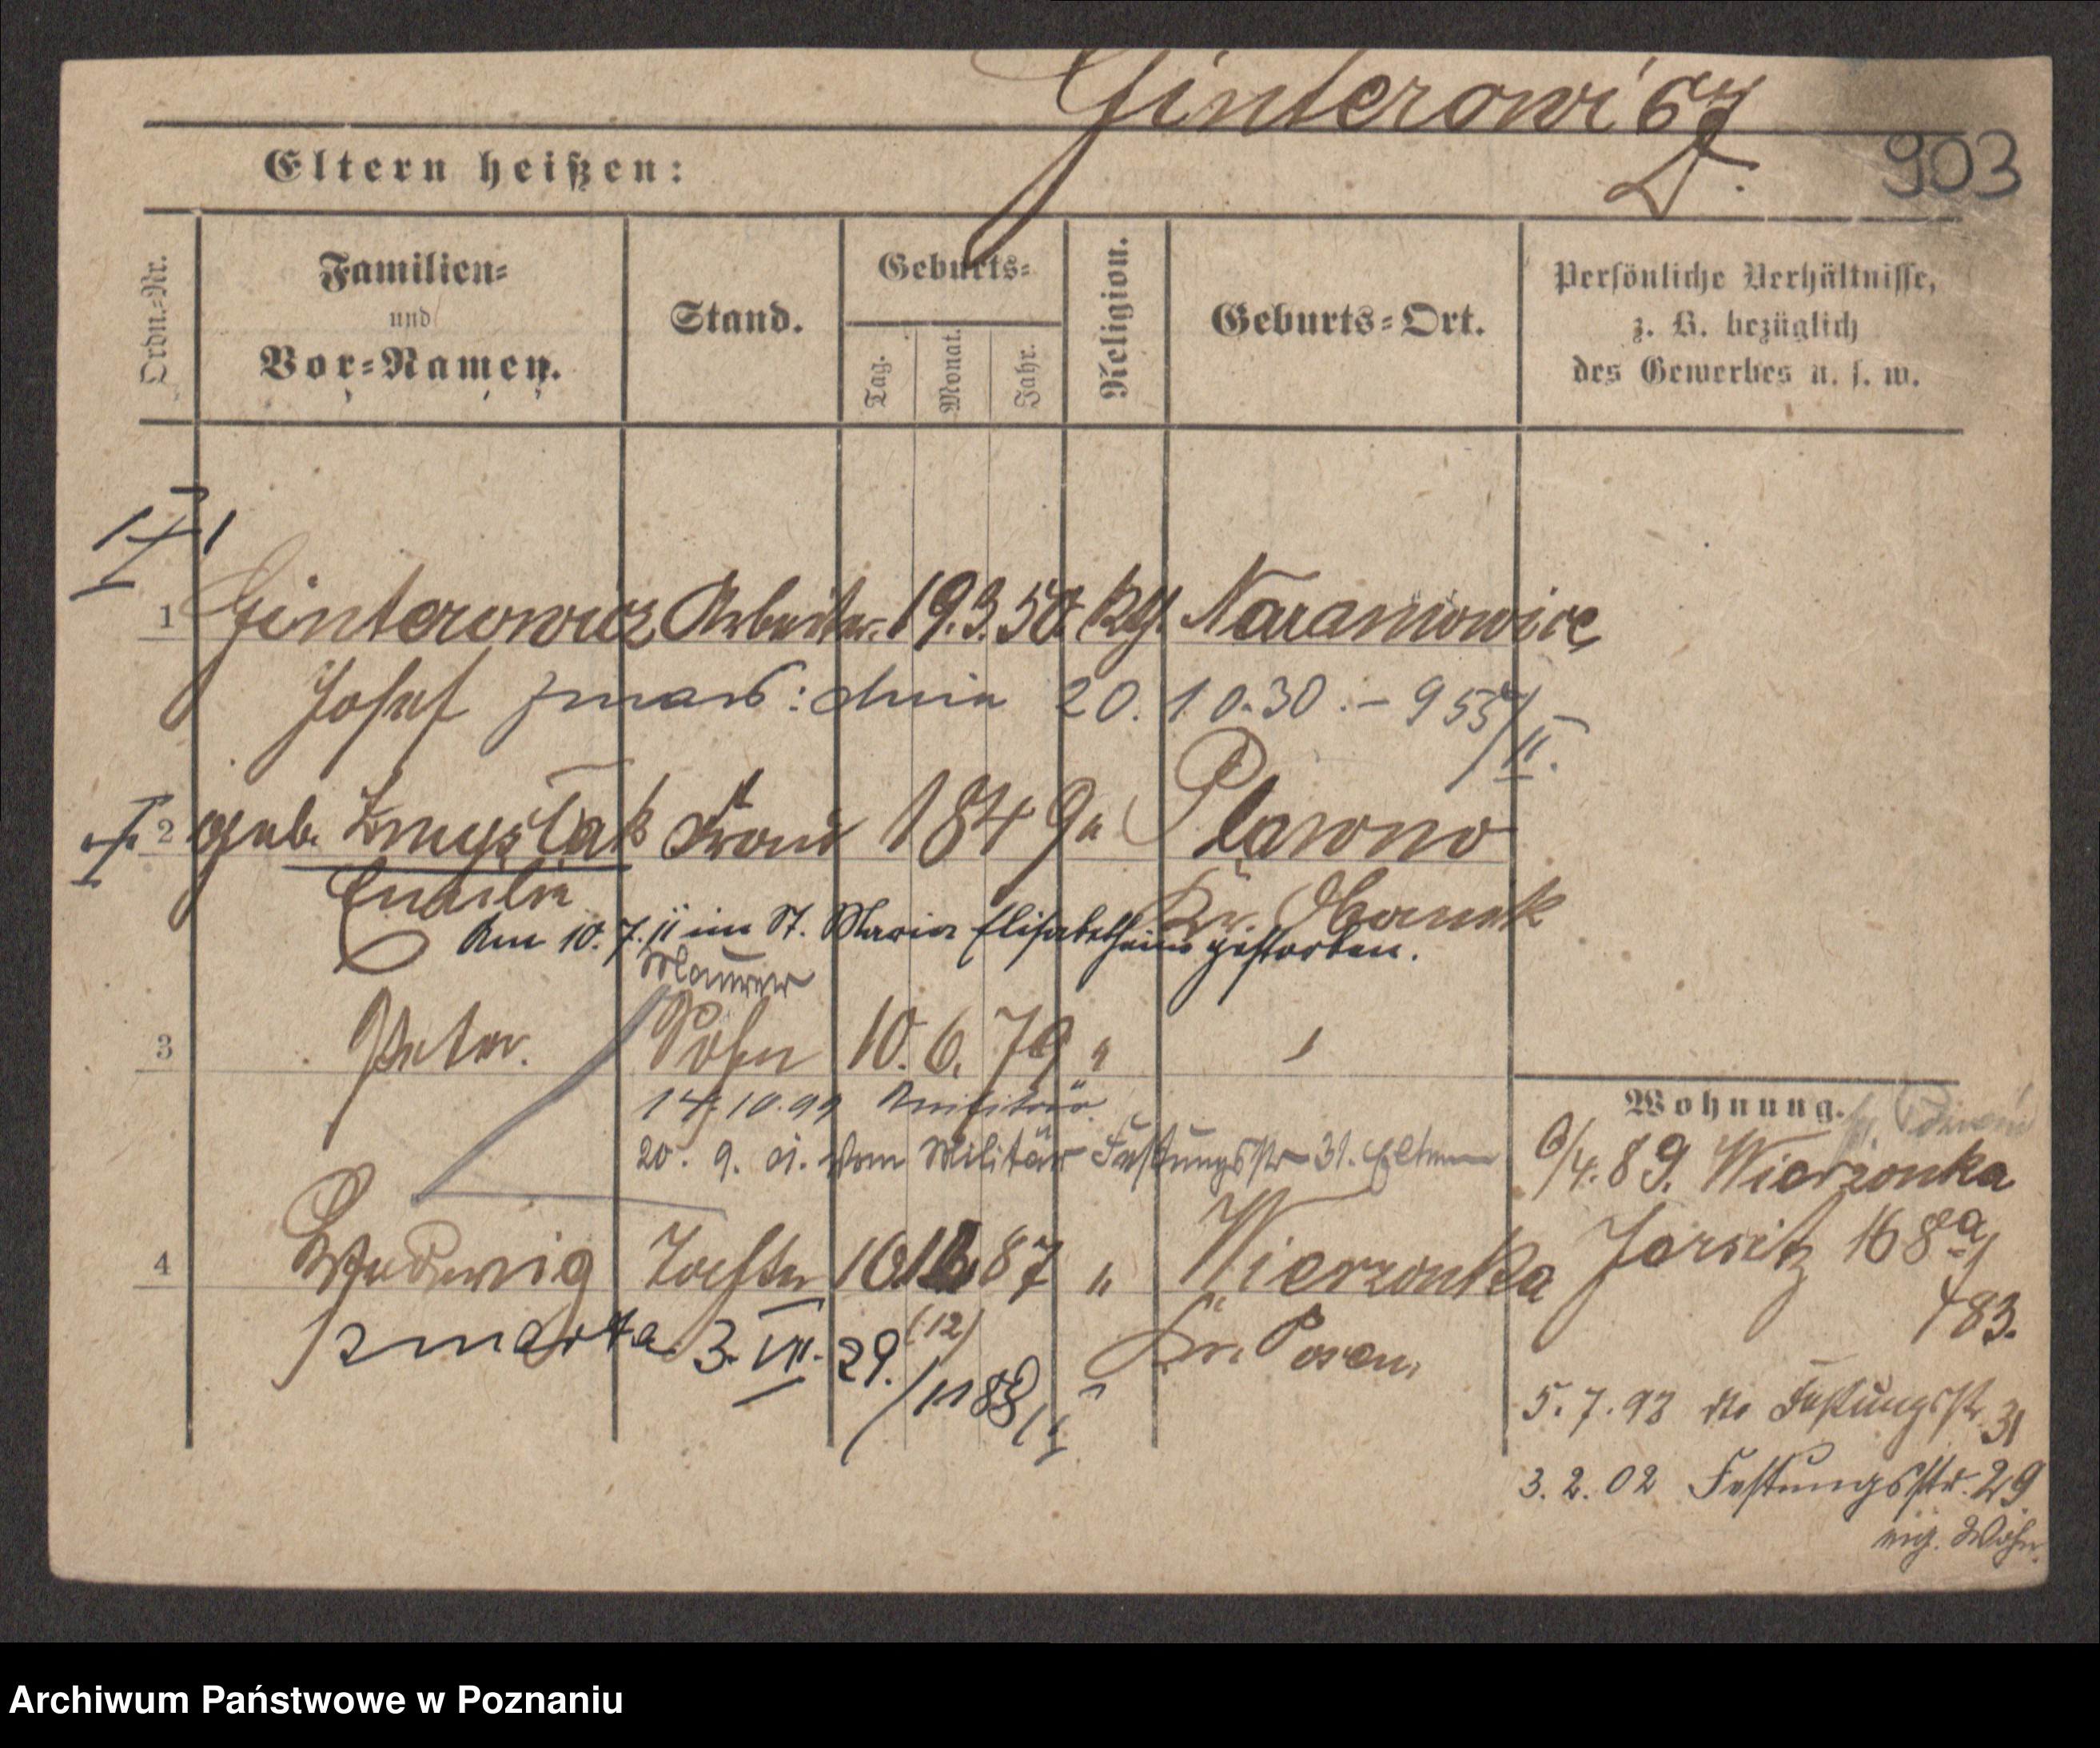 Ginterowicz
903
Eltern heißen:
Ordn.=Nr.
Familien=
und
Vor=Namen.
Stand.
Geburts=
Tag.
Monat.
Jahr.
Religion.
Geburts=Ort.
Persönliche Verhältnisse,
z. B. bezüglich
des Gewerbes u. s. w.
1 Ginterowicz Arbeiter 19.3.50. Naramowice
Josef zmarł: dnia 20.10.30. – 955/II.
2 geb. Zmyślak Frau 1849 " Plawno
Kr. Obornik
Am 10.7.11 im St. Maria Elisabethheim gestorben.
Maurer
3 Peter. Sohn 10.6.79 "
14.10.99
20. 9. 01. vom Militär Festungsstr 31. Eltern
Wohnung.
/4.89. Wierzonka
4 Hedwig Tochter 87 " Wierzonka
Jersitz 168a
483.
zmarła 3.VII.29. (12)
/1188/II
Kr. Posen.
5.7.93 Festungsstr. 31
3.2.02 Festungsstr. 29
eig. Wohn.
Archiwum Państwowe w Poznaniu